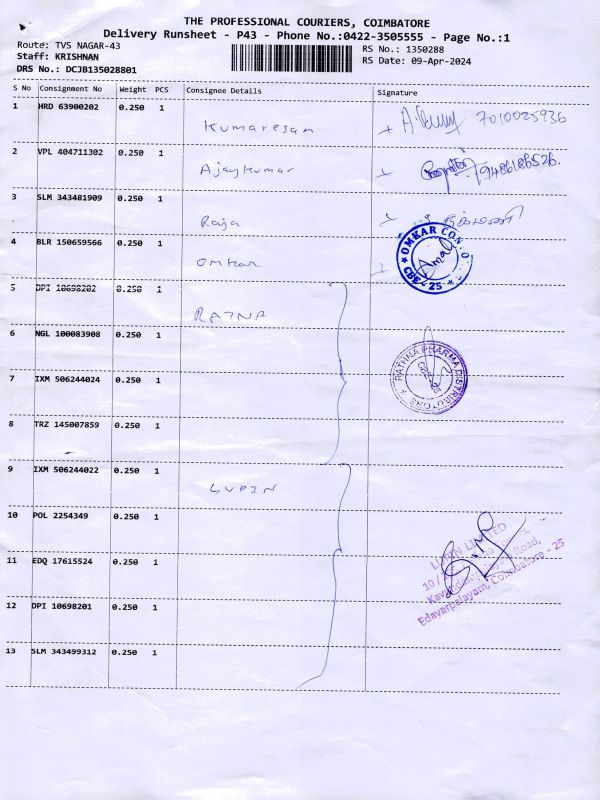 THE PROFESSIONAL COURIERS, COIMBATORE
Delivery Runsheet - P43 - Phone No.:0422-3505555 - Page No.:1
Route: TVS NAGAR-43 RS No.: 1350288
Staff: KRISHNAN RS Date: 09-Apr-2024
DRS No.: DCJB135028801
S No Consignment No Weight PCS Consignee Details Signature
1 HRD 63900202 0.250 1
Kumaresan 7010025936
2 VPL 404711302 0.250 1
Ajaykumar 9486186526.
3 SLM 343481909 0.250 1
Raja ருக்மணி
4 BLR 150659566 0.250 1
Omkar
OMKAR CON
Amal
CBE - 25
5 DPI 10698202 0.250 1
RATNA
6 NGL 100083908 0.250 1
RATHNA PHARMA DISTRIBUTORS
7 IXM 506244024 0.250 1
8 TRZ 145007859 0.250 1
9 IXM 506244022 0.250 1
LUPIN
10 POL 2254349 0.250 1
LUPIN LIMITED
11 EDQ 17615524 0.250 1
Road,
Edayarpalayam, Coimbatore - 25
12 DPI 10698201 0.250 1
13 SLM 343499312 0.250 1